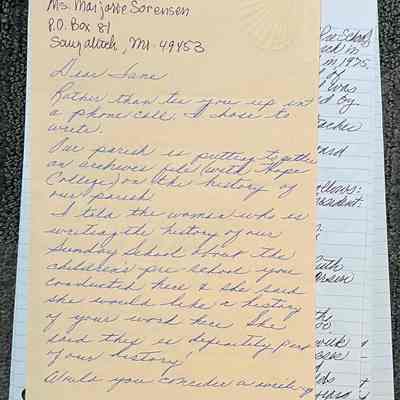 Ms. Marjorie Sorensen
P.O. Box 81
Saugatuck, MI. 49453
Dear Jane
Rather than tie you up in
a phone call I chose to
write.
Our parish is putting together
an archives file (with Hope
College) on the history of
our parish
I told the women who is
writing the history of our
Sunday School about the
children's pre-school you
conducted here & she said
she would like a history
of your work here. She
said this is definitely part
of our history!
Would you consider a write-up
Pre School
in 1975
of
was
by
Teacher
llows:
esident:
Ruth